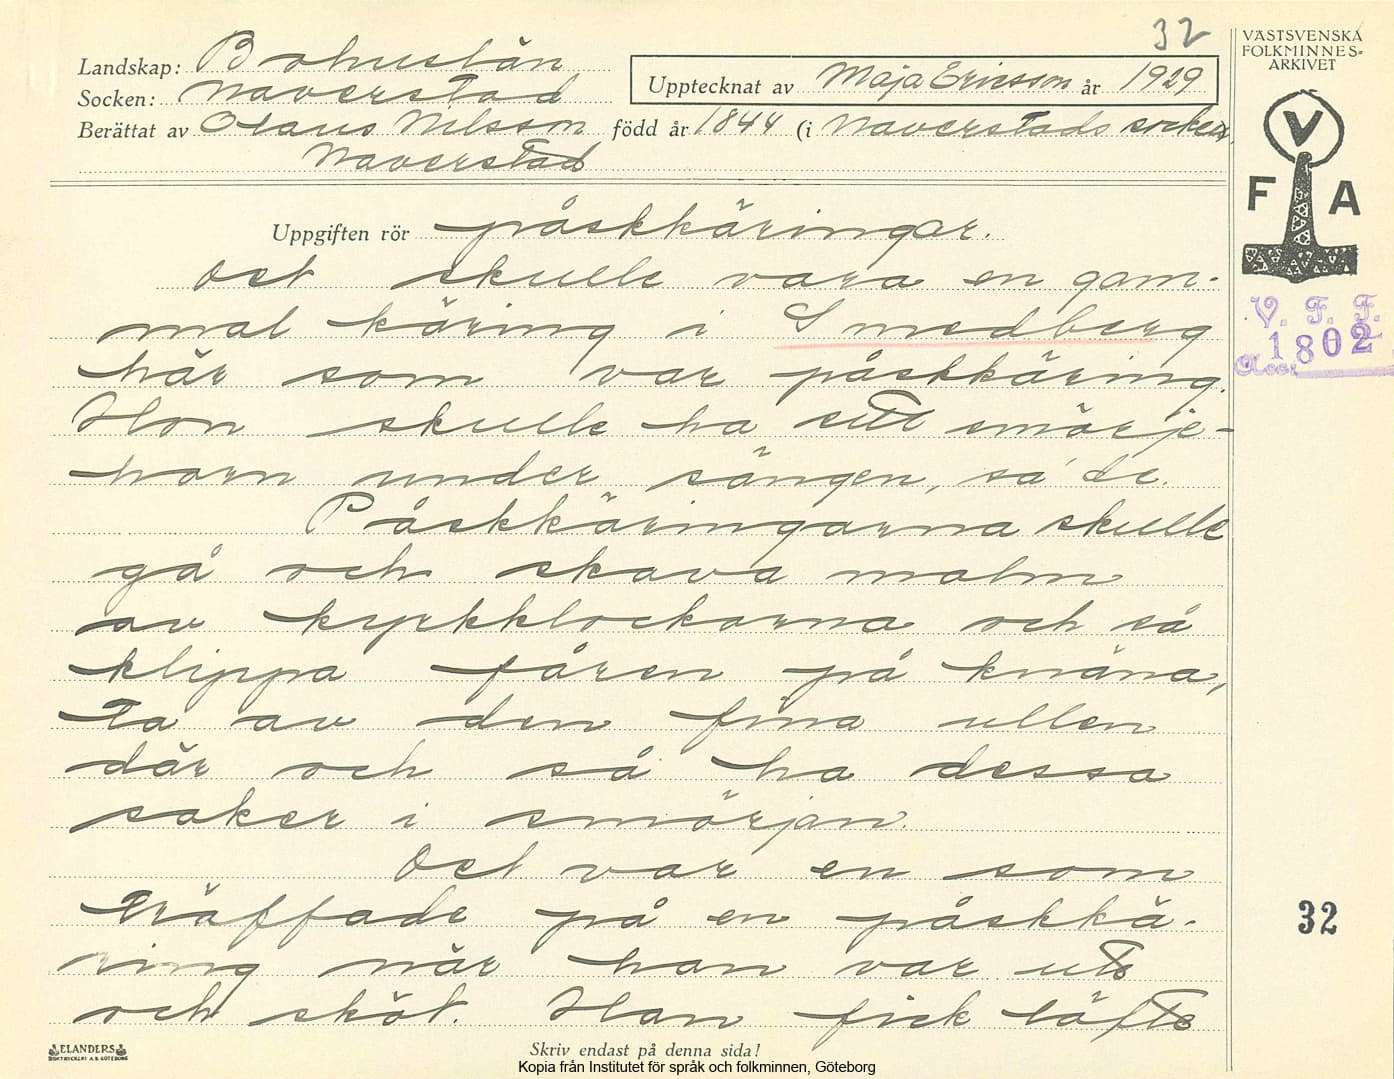 32
VÄSTSVENSKA
FOLKMINNES-
ARKIVET
Landskap: Bohuslän
Socken: Naverstad
Upptecknat av Maja Ericsson år 1929
Berättat av Olaus Nilsson född år 1844 (i Naverstads socken
Naverstad
V
F A
Uppgiften rör påskkäringar.
Det skulle vara en gam-
mal käring i Smedberg
här som var påskkäring.
Hon skulle ha sitt smörje-
horn under sängen, sa de.
Påskkäringarna skulle
gå och skava malm
av kyrkklockorna och så
klippa fåren på knäna,
ta av den fina ullen
där och så ha dessa
saker i smörjan.
Det var en som
träffade på en påskkä-
ring när han var ute
och sköt. Han fick löfte
V. F. F.
1802
Acc.
32
ELANDERS
BOKTRYCKERI A.B. GÖTEBORG
Skriv endast på denna sida!
Kopia från Institutet för språk och folkminnen, Göteborg